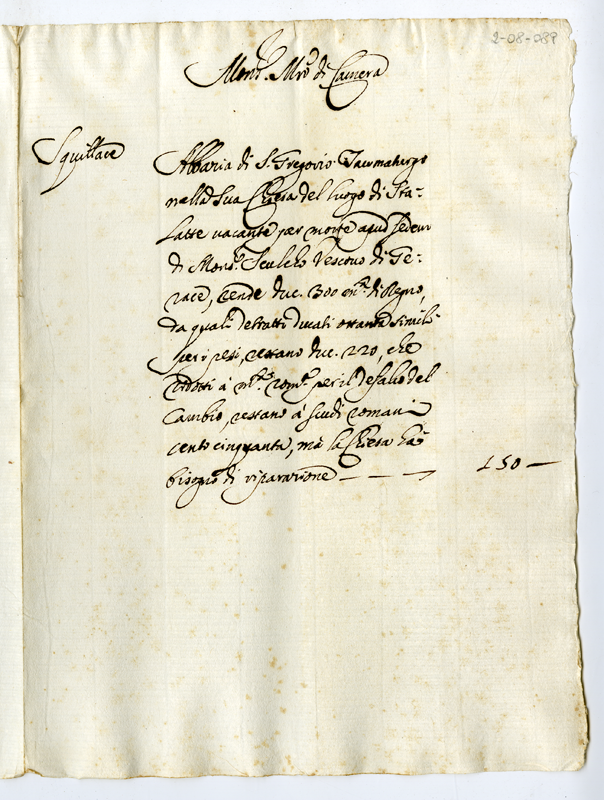 2-08-089
Mons.r Mro di Camera
Squillace
Abbazia di S. Gregorio Taumaturgo
nella sua Chiesa del luogo di Sta-
latte vacante per morte apud sedem
di Mons.r Vescovo di Ge-
race, rende duc. 300 m.ta di Regno,
da quali detratti ducati ottanta simili
per i pesi, restano duc. 220, che
ridotti à m.ta rom.a per il defalco del
Cambio, restano à scudi romani
cento cinquanta, mà la Chiesa hà
bisogno di riparazione — — 150 —